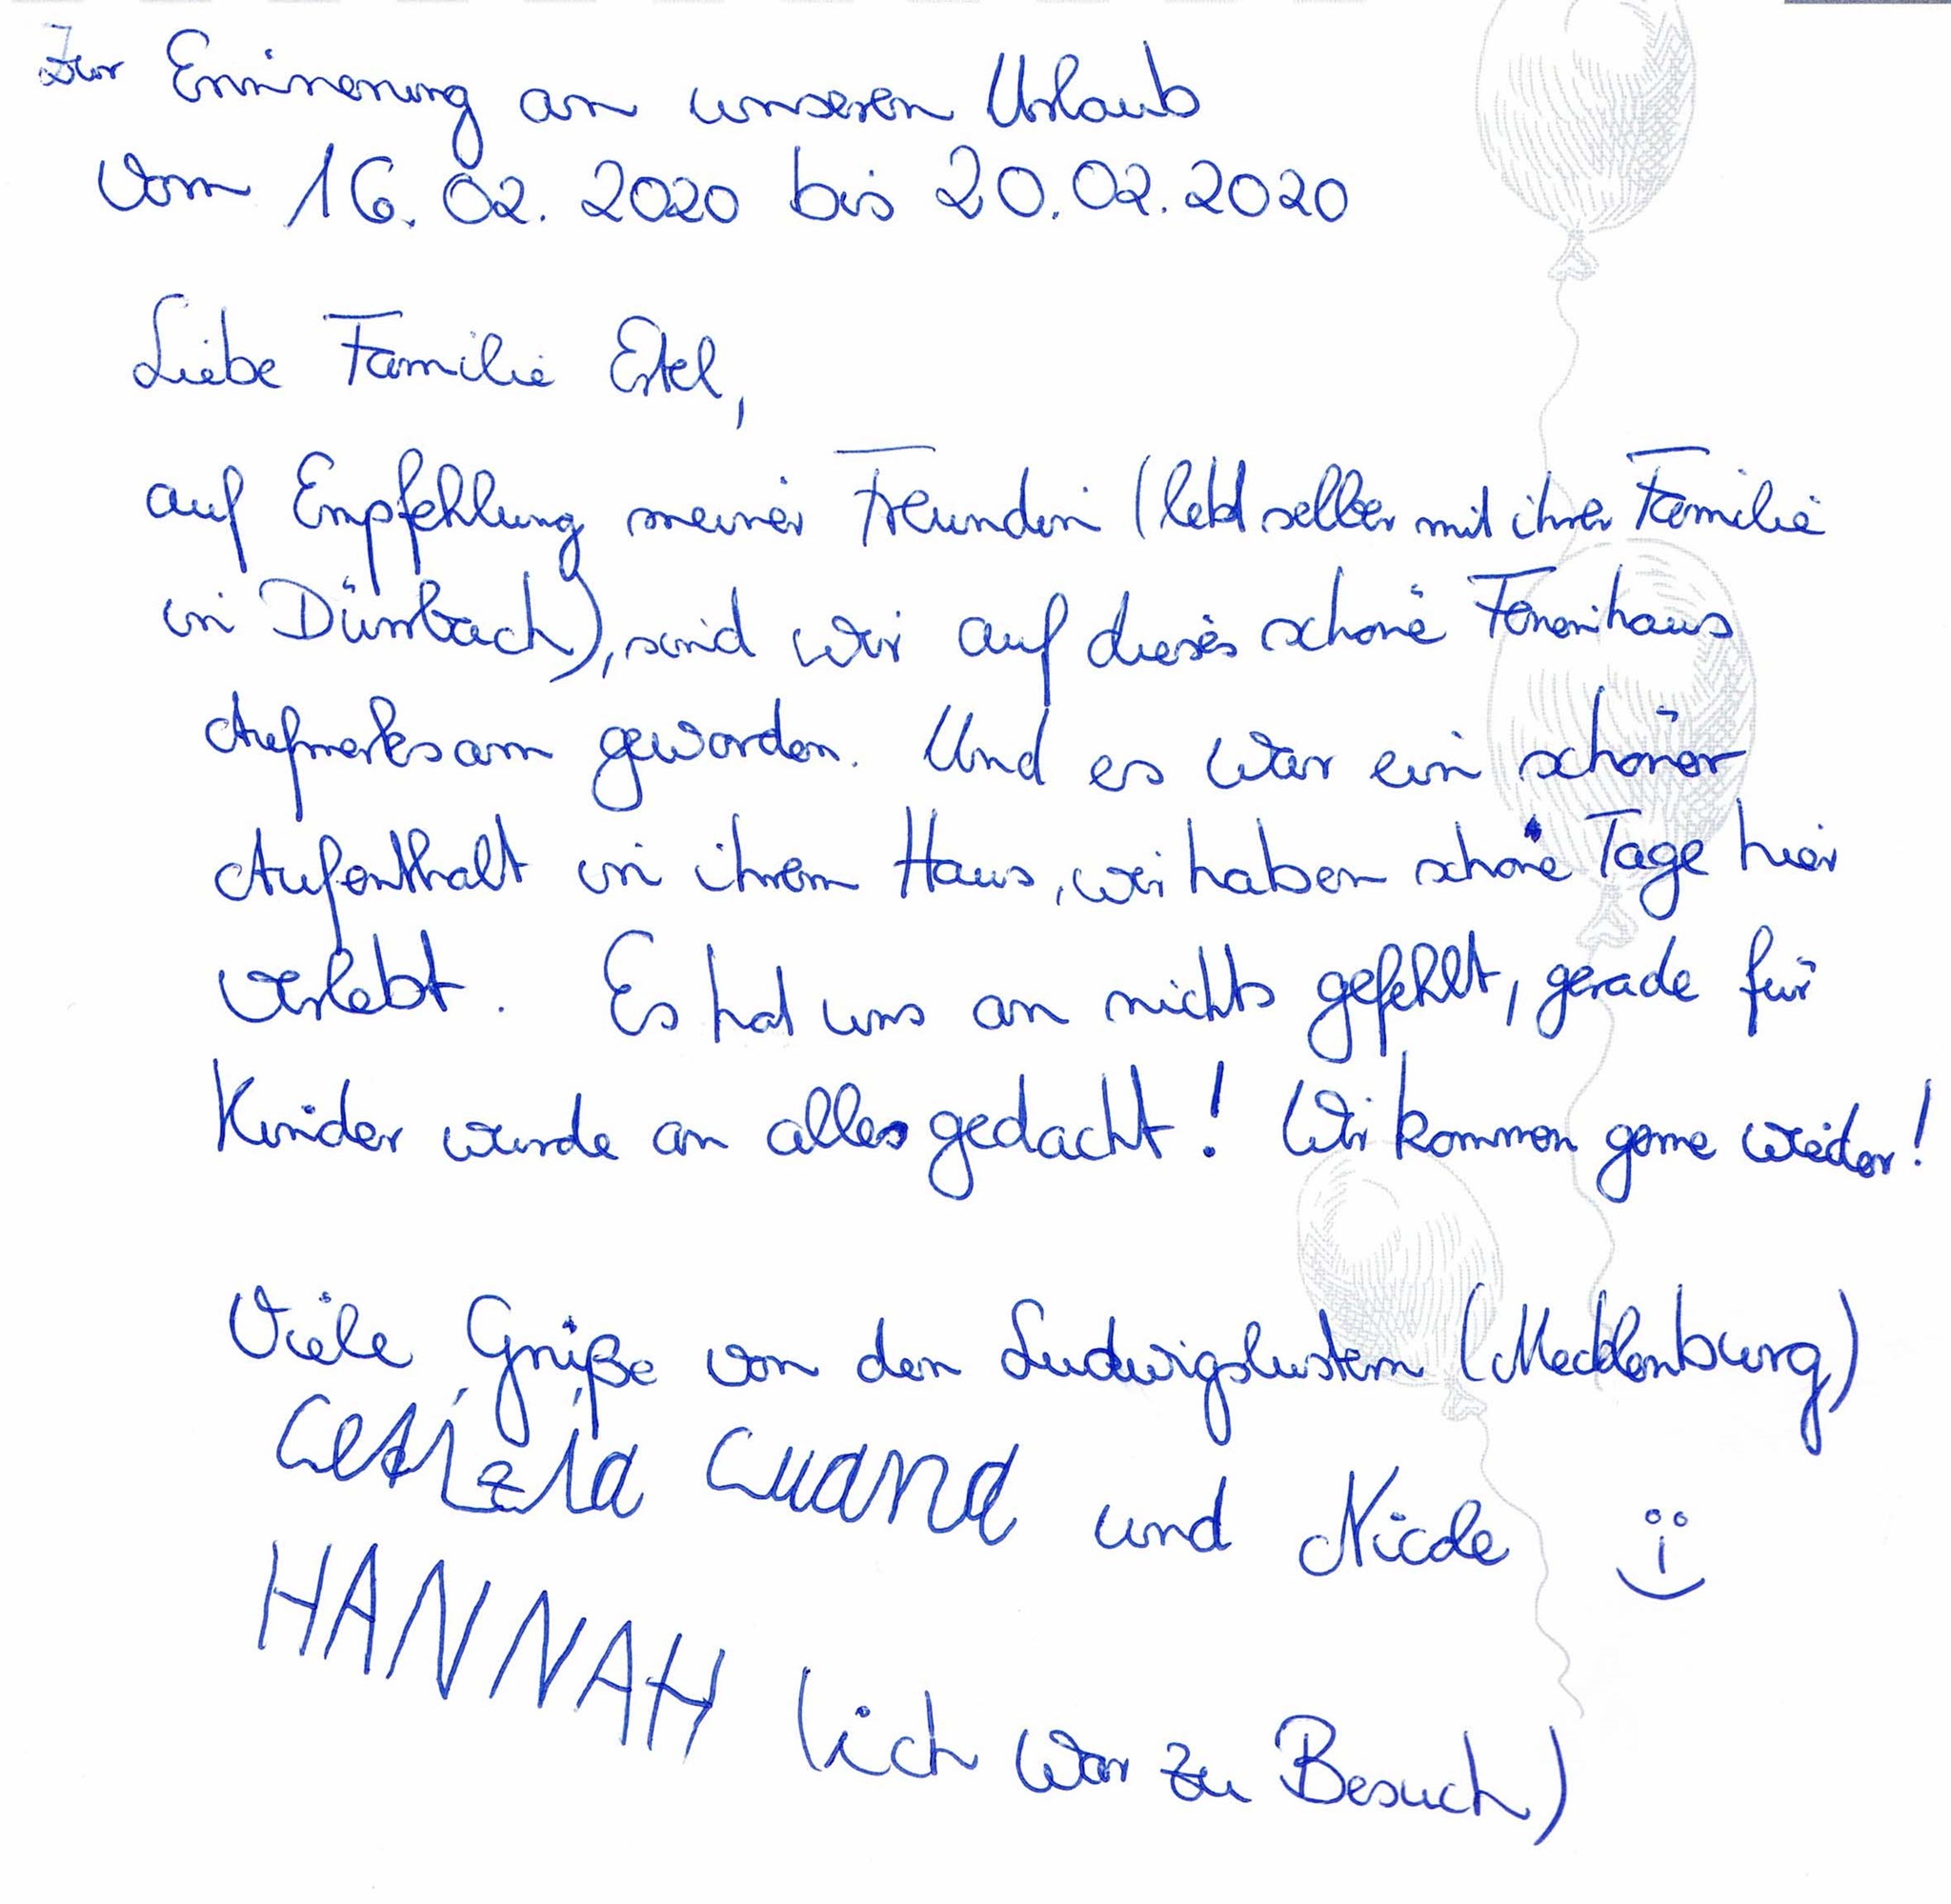 Zur Erinnerung an unseren Urlaub
vom 16.02.2020 bis 20.02.2020
Liebe Familie Ertel,
auf Empfehlung meiner Freundin (lebt selber mit ihrer Familie
in Dürnbach), sind wir auf dieses schöne Ferienhaus
Aufmerksam geworden. Und es war ein schöner
Aufenthalt in ihrem Haus, wir haben schöne Tage hier
verlebt. Es hat uns an nichts gefehlt, gerade für
Kinder wurde an alles gedacht! Wir kommen gerne wieder!
Viele Grüße von den Ludwigslustern (Mecklenburg)
und Nicole
HANNAH (ich war zu Besuch)